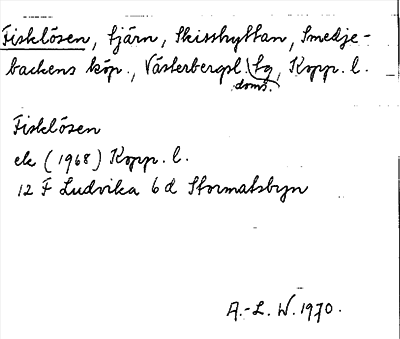 Fisklösen, tjärn, Skisshyttan, Smedje-
backens köp., Västerbergsl. tg, Kopp. l.
doms.
Fisklösen
ek (1968) Kopp. l.
12 F Ludvika 6 d Stormatsbyn
A.-L. W. 1970.